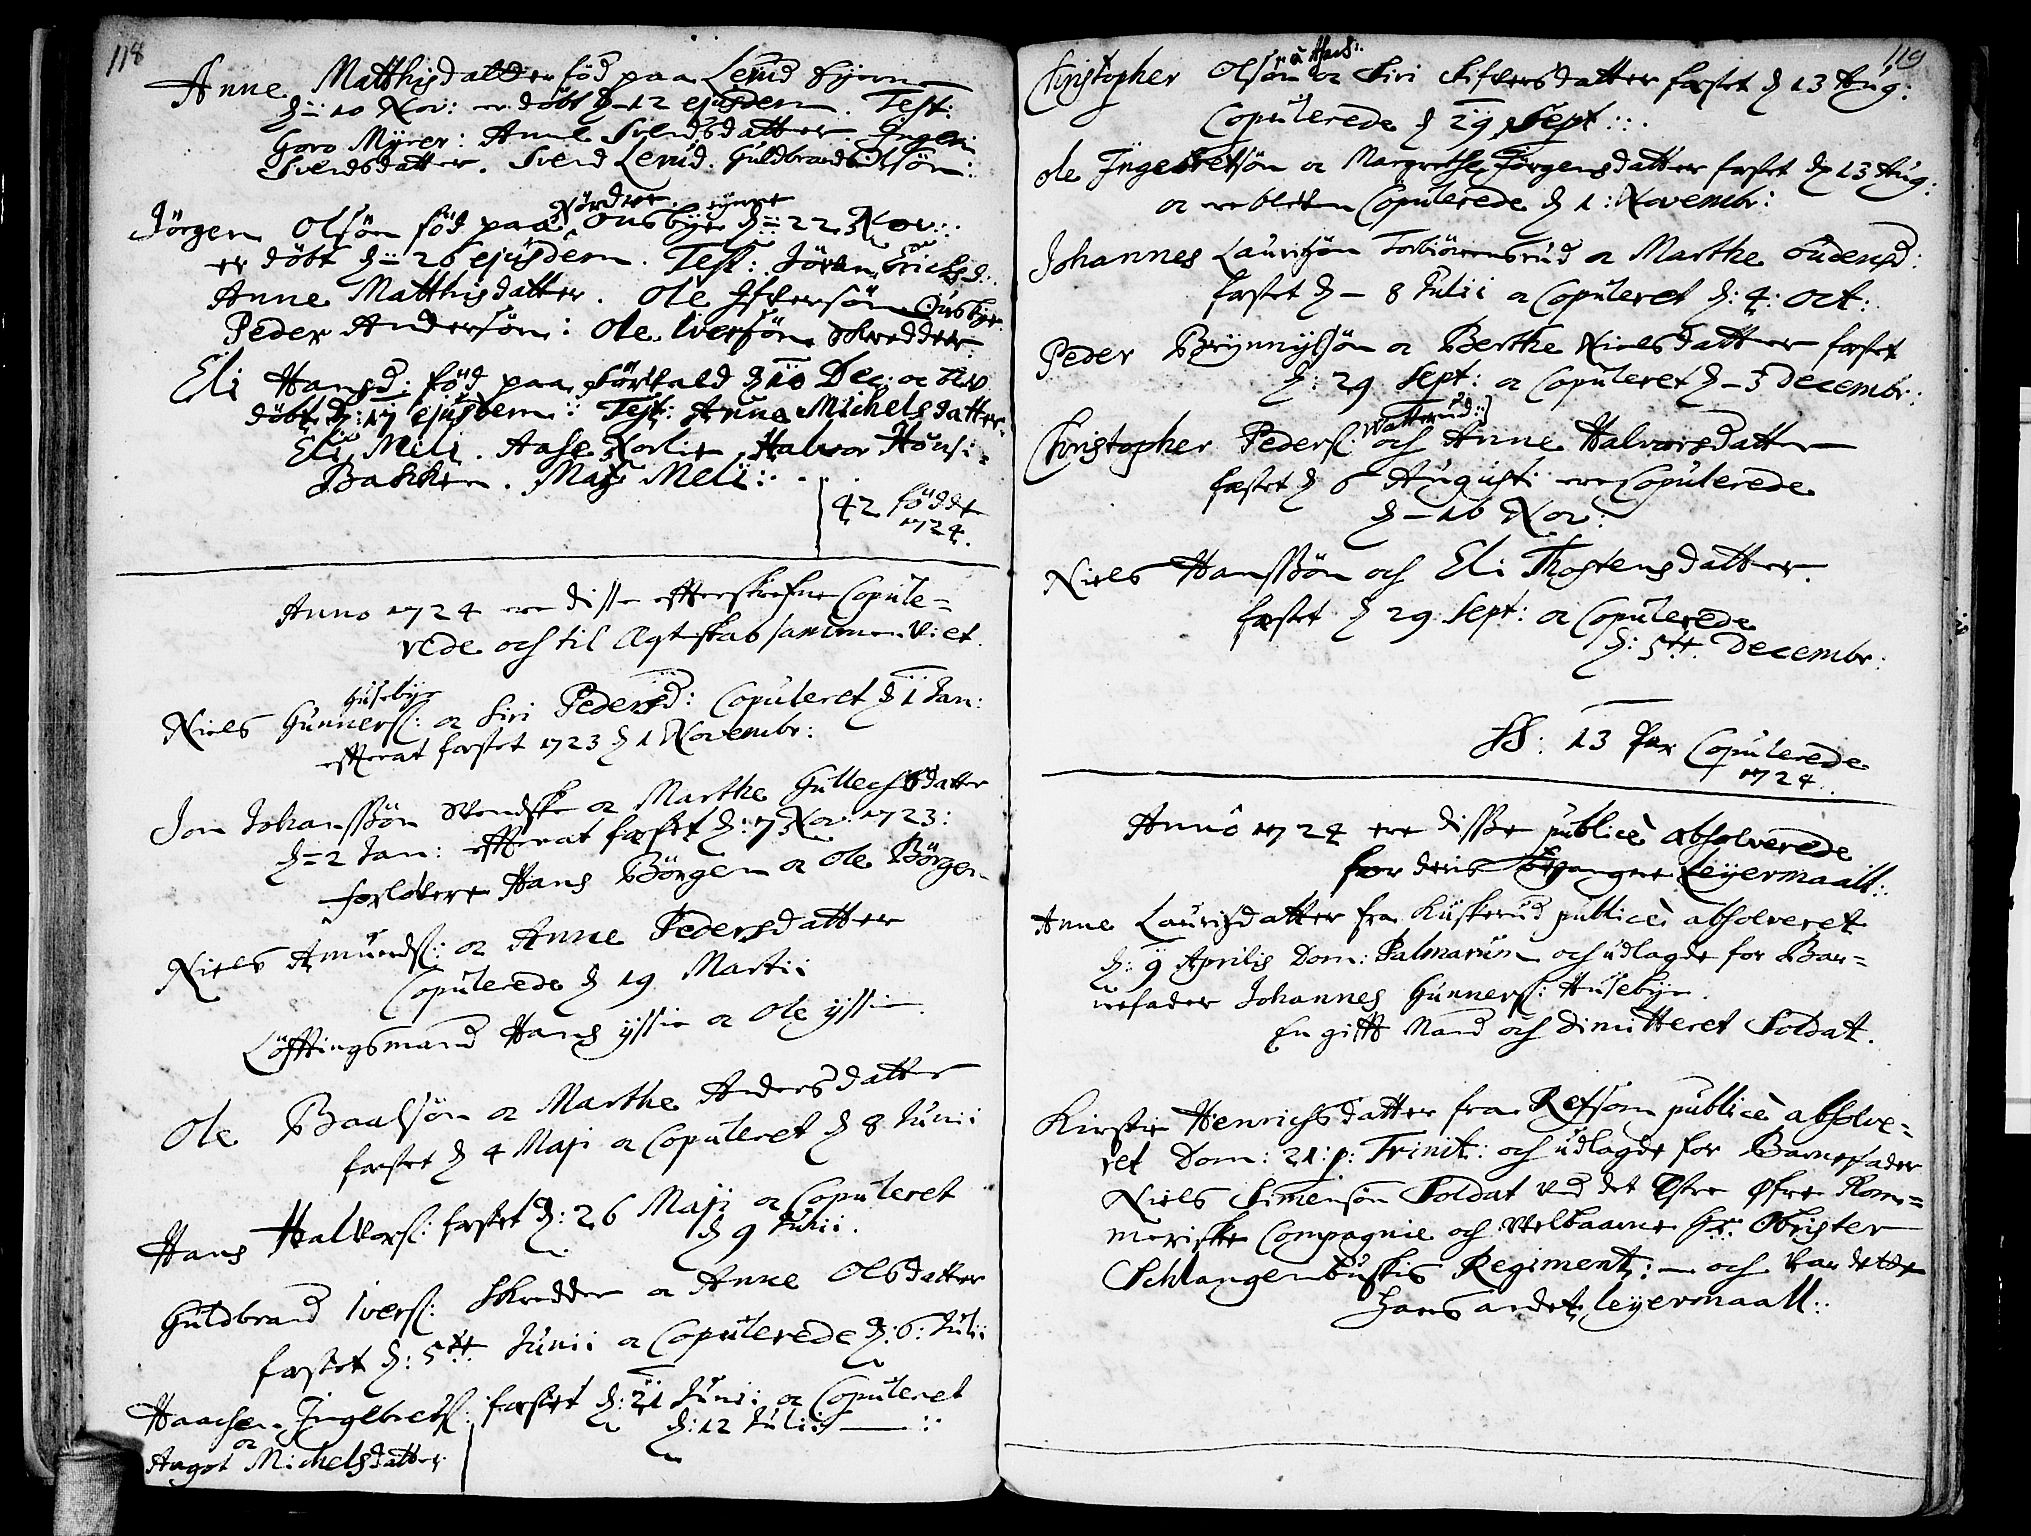 118
Anne Matthisdatter fød paa Lerud
d: 10 Nov: er døbt d 12 ejusdem. Test:
Goro Myrer: Anne Svendsdatter. Ingeri
Svendsdatter. Svend Lerud. Guldbrand Olsøn:
Nordre
Jørgen Olsøn fød paa Ousbye d: 22 Nov::
er døbt d: 26 ejusdem. Test: Jøran Erichsd:
Anne Matthisdatter. Ole Ifversøn Ousbye
Peder Andersøn: Ole Iversøn Skredder:
Eli Hansd: fød paa d 10 Dec: oc blev
døbt d: 17 ejusdem: Test: Anna Michelsdatter.
Eli Meli. Aase Norlie Halvor Hønsi=
Bakken. Meli:
42 fødde
1724.
Anno 1724 ere disse effterskrefne Copule=
rede och til Ægteskab sammen viet.
Husebye
Niels Gunners: oc Siri Pedersd: Copuleret d 1 Jan:
efferat festet 1723 d 1 Novembr:
Jon Johanssøn Svendske oc Marthe Gullechsdatter
d=2 Jan: efferat festet d: 7 Nov: 1723:
forlovere Hans Børgen oc Ole Børgen
Niels Amunds: oc Anne Pedersdatter
Copulerede d 19 Martii
Løfftingsmand Hans yssie oc Ole yssie.
Ole Baalsøn oc Marthe Andersdatter
festet d 4 Maji oc Copuleret d 8 Junii
Hans Halvors: festet d: 26 Maji oc Copuleret
d 9 Julii.
Guldbrand Ivers: Skredder oc Anne Olsdatter
festet d: 5te Junii oc Copulerede d: 6: Julii
Haachen Ingebrets: festet d: 21 Juni: oc Copuleret
oc d: 12 Julii
Aagot Michelsdatter
119
Christopher Olsøn oc Siri Sifversdatter festet d 13 Aug:
Copulerede d 29 Sept::
Ole Ingebretsøn oc Margrethe Jørgensdatter festet d 13 Aug:
oc ere bleven Copulerede d 1: Novembr:
Johannes Lauritsøn Torbiørensrud oc Marthe Gudensd:
festet d- 8 Julii oc Copuleret d: 4: Oct:
Peder Brynnylsøn oc Berthe Nielsdatter festet
d: 29 Sept: oc Copuleret d- 3 Decembr:
Watterud:
Christopher Peders: och Anne Halvorsdatter
festet d 6 August: ere Copulerede
d- 16 Nov:
Niels Hanssøn och Eli Thostensdatter.
festet d 29 Sept: oc Copulerede
d: 5te. Decembr:
SS: 13 Par Copulerede
1724
Anno 1724 ere disse publicè absolverede
for deris begangne Leyermaall:
Anne Lauritsdatter fra Kuskerud publicè absolveret
d: 9 Aprilis Dom: Palmarum och udlagde for Bar=
nefader Johannes Gunners: Husebye.
En gifft Mand och dimitteret Soldat.
Kirstie Henrichsdatter fra Refsom publicè absolve=
ret Dom: 21: p: Trinit: och udlagde for Barnefader
Niels Simensøn Soldat ved det Østre Øfre Rom=
meriske Compagnie och Velbaarne Hr: Obrister
Schlangenbuskis Regiment: och var dette
hans andet leyermaall: